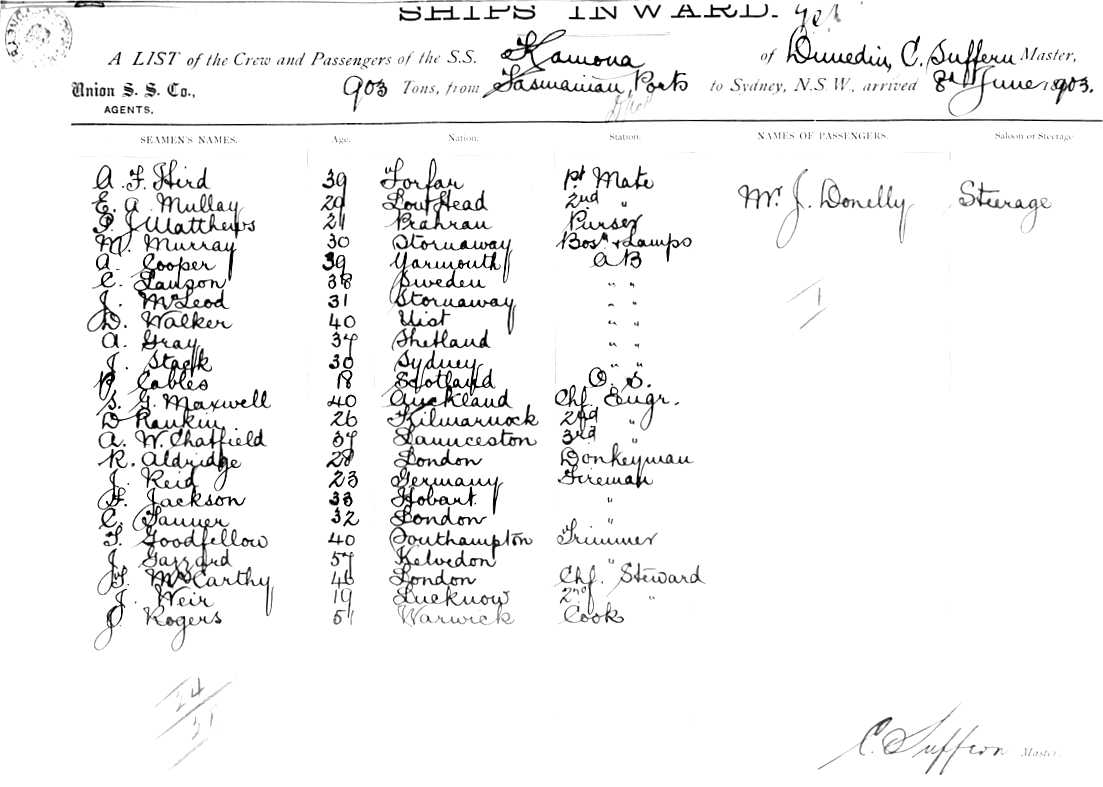 SHIPS INWARD.
A LIST of the Crew and Passengers of the S.S. Kamona of Dunedin, C. Suffern Master,
Union S. S. Co., AGENTS, 903 Tons, from Tasmanian Ports to Sydney, N.S.W., arrived 8th June 1903.
SEAMEN'S NAMES. Age. Nation. Station. NAMES OF PASSENGERS. Saloon or Steerage
A. F. Hird 39 Forfar 1st Mate Mr. J. Donelly Steerage
E. A. Mullay 29 Lout Head 2nd "
P. J. Matthews 21 Prahran Purser
M. Murray 30 Stornaway Bosn & Lamps
A. Cooper 39 Yarmouth A B
C. Lauson 38 Sweden " "
J. McLeod 31 Stornaway " "
D. Walker 40 Uist " "
A. Gray 37 Shetland " "
J. Stack 30 Sydney " "
P. Cables 18 Scotland O. S.
S. G. Maxwell 40 Auckland Chf. Engr.
D Rankin 26 Kilmarnock 2nd "
A. W. Chatfield 37 Launceston 3rd "
R. Aldridge 28 London Donkeyman
J. Reid 23 Germany Fireman
F. Jackson 33 Hobart "
C. Tanner 32 London "
T. Goodfellow 40 Southampton Trimmer
J. Gazzard 57 Kelvedon "
F. McCarthy 46 London Chf. Steward
J. Weir 19 Lucknow 2nd "
J. Rogers 51 Warwick Cook
1
24
C. Suffern Master.